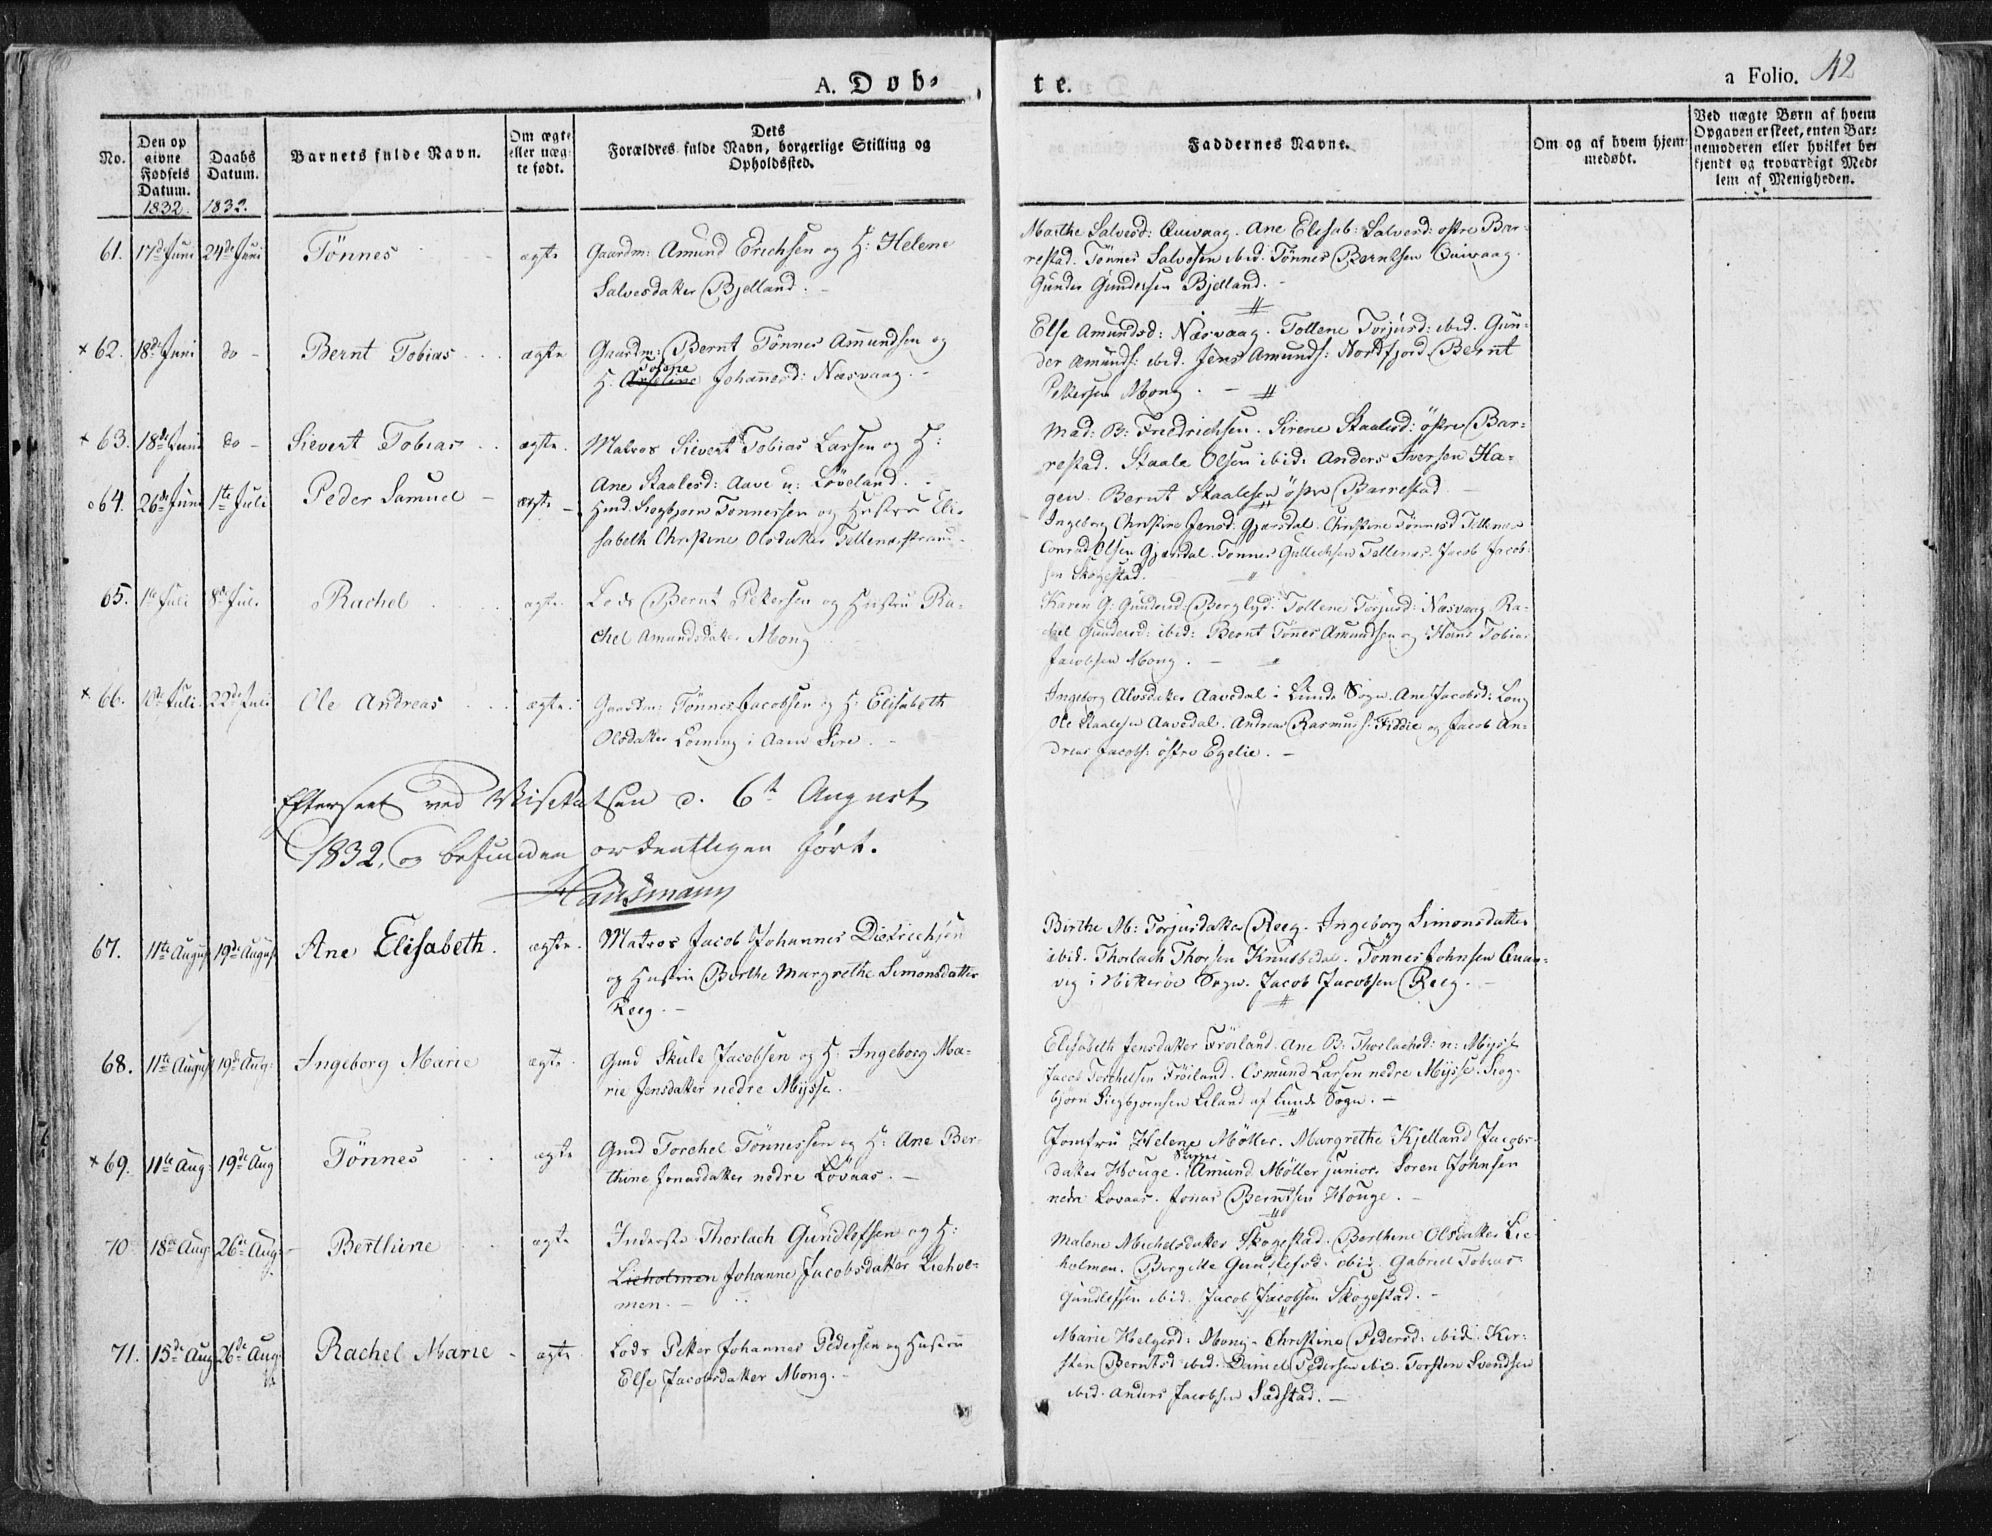 A. Dob-
te.
a Folio. 42
No.
Den op
givne
Fødsels
Datum.
1832.
Daabs
Datum.
1832.
Barnets fulde Navn.
Om ægte
eller uæg-
te født.
Dets
Forældres fulde Navn, borgerlige Stilling og
Opholdssted.
Faddernes Navne.
Om og af hvem hjem-
medøbt.
Ved uægte Børn af hvem
Opgaven er skeet, enten Bar-
nemoderen eller hvilket be-
kjendt og troværdigt Med-
lem af Menigheden.
61. 17de Juni 24de Juni Tönnes ægte Gaardm: Amund Erichsen og H: Helene
Salvesdatter Bjelland.
Marthe Salvesd: Quivaag. Ane Elisab: Salvesd: östre Bar-
restad. Tönnes Salvesen ibid. Tönnes Berntsen Quivaag.
Gunder Gundersen Bjelland.
× 62. 18de Juni do Bernt Tobias ægte Gaardm: Bernt Tönnes Amundsen og
H: Johannesd: Næsvaag.
Else Amundsd: Næsvaag. Tollene Torjusd: ibid. Gun-
der Amunds: ibid. Jens Amunds: Nordfjord. Bernt
Pettersen Mong.
× 63. 18de Juni do Sievert Tobias ægte. Matros Sievert Tobias Larsen og H:
Ane Staalesd: Aave u: Löveland.
Mad: B: Fredrichsen. Sirene Staalesd: östre Bar-
restad. Staale Olsen ibid. Anders Iversen Ha-
gen. Bernt Staalesen östre Barrestad.
o 64. 26de Juni 1te Juli Peder Samuel ægte Gmd. Siegbjørn Tönnessen og Hustru Eli-
sabeth Christine Olsdatter Tellenæsstrand.
Ingeborg Christine Jensd: Gjersdal. Christine Tönnesd Tellenæs
Conrad Olsen Gjersdal. Tönnes Gullichsen Tellenæs. Jacob Jacob-
sen Skogestad.
65. 1te Juli 8de Juli Rachel ægte. Lods Bernt Pettersen og Hustru Ra-
chel Amundsdatter Mong
Karen G: Gundersd: Berglyd. Tollene Torjusd: Næsvaag. Ra-
chel Gundersd: ibid: Bernt Tönnes Amundsen og Hans Tobias
Jacobsen Mong.
× 66. Juli. 22de Juli Ole Andreas ægte. Gaardm: Tönnes Jacobsen og H: Elisabeth
Olsdatter Loining i Aane Sire.
Ingeborg Alvsdatter Aavedal i Lunde Sogn. Ane Jacobsd:
Ole Staalesen Aavedal. Andreas Rasmus s: Fiddie og Jacob An-
dreas Jacobs: östre Egelie.
Efterseet ved Visitatsen d. 6te August
1832, og befunden ordentligen fört.
Hausmann
67. 11te August 19de August Ane Elisabeth. ægte. Matros Jacob Johannes Dietrichsen
og Hustru Birthe Margrethe Simonsdatter
Reeg.
Birthe M: Torjusdatter Reeg. Ingeborg Simonsdatter
ibid. Thorlach Thorsen Knutsdal. Tönnes Johnsen Quan-
vig i Hitterøe Sogn. Jacob Jacobsen Reeg.
68. 11te August 19de Aug: Ingeborg Marie ægte. Gmd Skule Jacobsen og H: Ingeborg Ma-
rie Jensdatter nedre Mysse.
Elisabeth Jensdatter Fröiland. Ane B: Thorlachsd: n: Mysse
Jacob Torchelsen Fröiland. Osmund Larsen nedre Mysse. Sieg-
bjørn Siegbjørnsen Leland af Lunde Sogn.
× 69. 11te Aug: 19de Aug Tönnes ægte Gmd Torchel Tönnessen og H: Ane Ber-
thine Jonasdatter nedre Lövaas.
Jomfru Helene Möller. Margrethe Kjelland Jacobs-
datter Houge. Amund Möller junior. Soren Johnsen
nedre Lovaas. Jonas Berntsen Houge.
70 18de Aug: 26de Aug: Berthine ægte Inderste Thorlach Gundlefsen og H:
Lieholmen Johanne Jacobsdatter Liehol-
men.
Malene Michelsdatter Skogestad. Berthine Olsdatter Lie-
holmen. Bergitte Gundlefsd: ibid. Gabriel Tobias
Gundlefsen ibid. Jacob Jacobsen Skogestad.
71. 15de Aug 26de Aug: Rachel Marie ægte Lods Petter Johannes Pedersen og Hustru
Else Jacobsdatter Mong.
Marie Helgesd: Mong. Christine Pedersd: ibid. Kir-
sten Berntsd ibid. Daniel Pedersen ibid. Torsten Svendsen
ibid. Anders Jacobsen Sædstad.